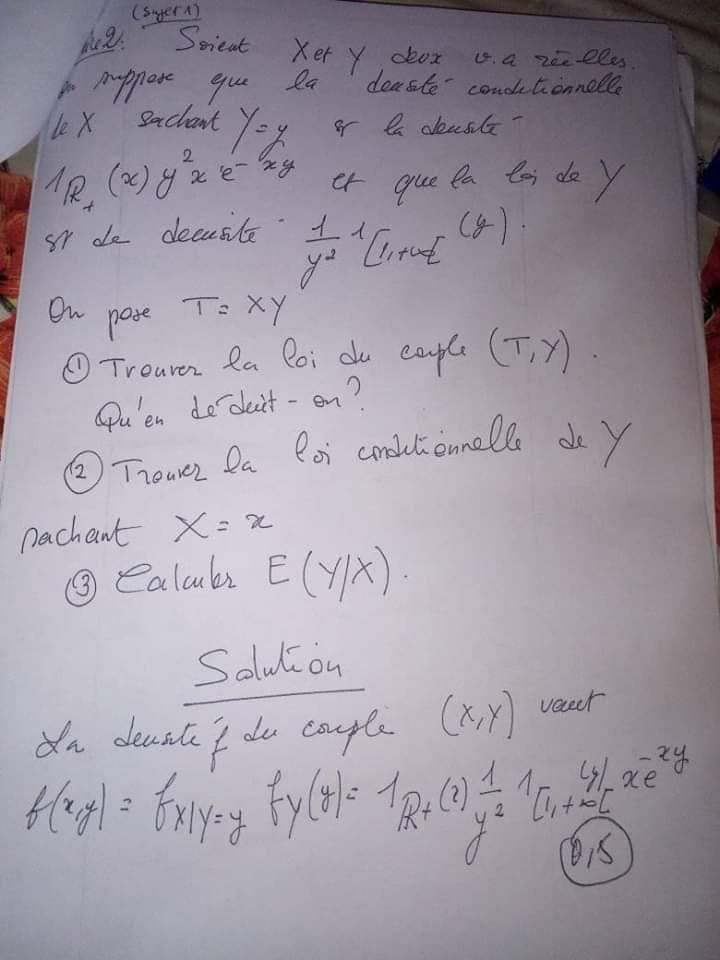 (Sujet 1)
2: Soient X et Y deux v.a réelles.
On suppose que la densité conditionnelle
de X sachant Y=y est la densité
1_{R_+}(x) y^2 x e^{-xy} et que la loi de Y
est de densité 1/y^2 1_{[1,+∞[}(y).
On pose T = XY
① Trouver la loi du couple (T,Y).
Qu'en déduit-on?
② Trouver la loi conditionnelle de Y
sachant X = x
③ Calculer E(Y/X).
Solution
La densité f du couple (X,Y) vaut
f(x,y) = f_{X|Y=y} f_Y(y) = 1_{R_+}(x) 1/y^2 1_{[1,+∞[}(y) x e^{-xy}
0,5